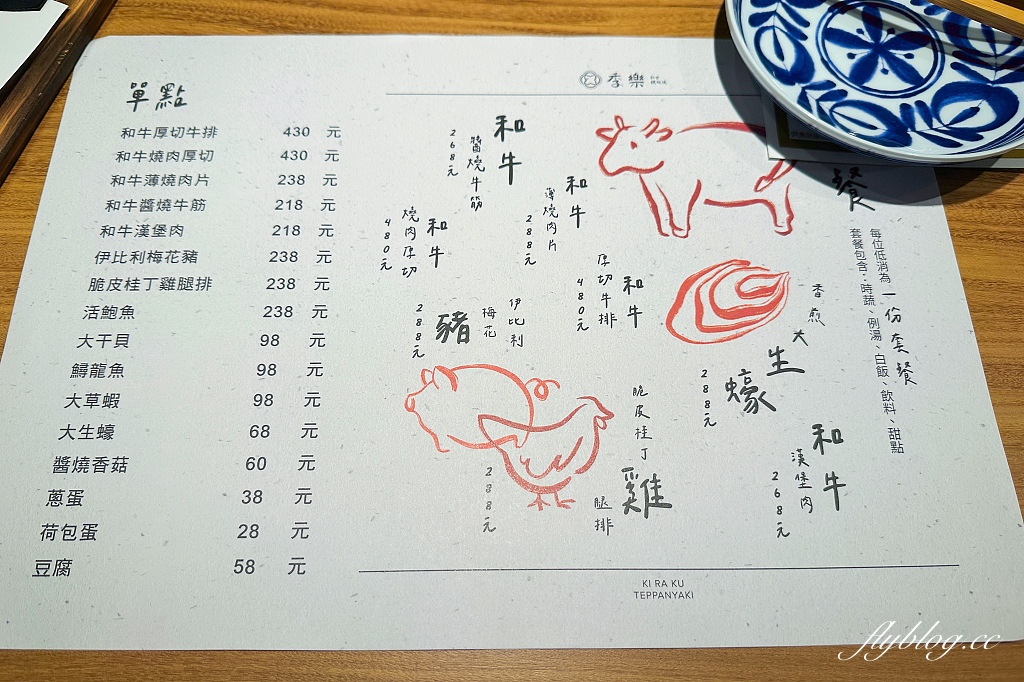 單點
和牛厚切牛排 430 元
和牛燒肉厚切 430 元
和牛薄燒肉片 238 元
和牛醬燒牛筋 218 元
和牛漢堡肉 218 元
伊比利梅花豬 238 元
脆皮桂丁雞腿排 238 元
活鮑魚 238 元
大干貝 98 元
鱘龍魚 98 元
大草蝦 98 元
大生蠔 68 元
醬燒香菇 60 元
蔥蛋 38 元
荷包蛋 28 元
豆腐 58 元
季樂
餐
每位低消為一份套餐
套餐包含：時蔬、例湯、白飯、飲料、甜點
和牛
醬燒牛筋
268元
和牛
薄燒肉片
288元
和牛
燒肉厚切
480元
和牛
厚切牛排
480元
伊比利
梅花
豬
288元
香煎
大生蠔
288元
脆皮桂丁
雞
腿排
288元
和牛
漢堡肉
268元
KI RA KU
TEPPANYAKI
flyblog.cc